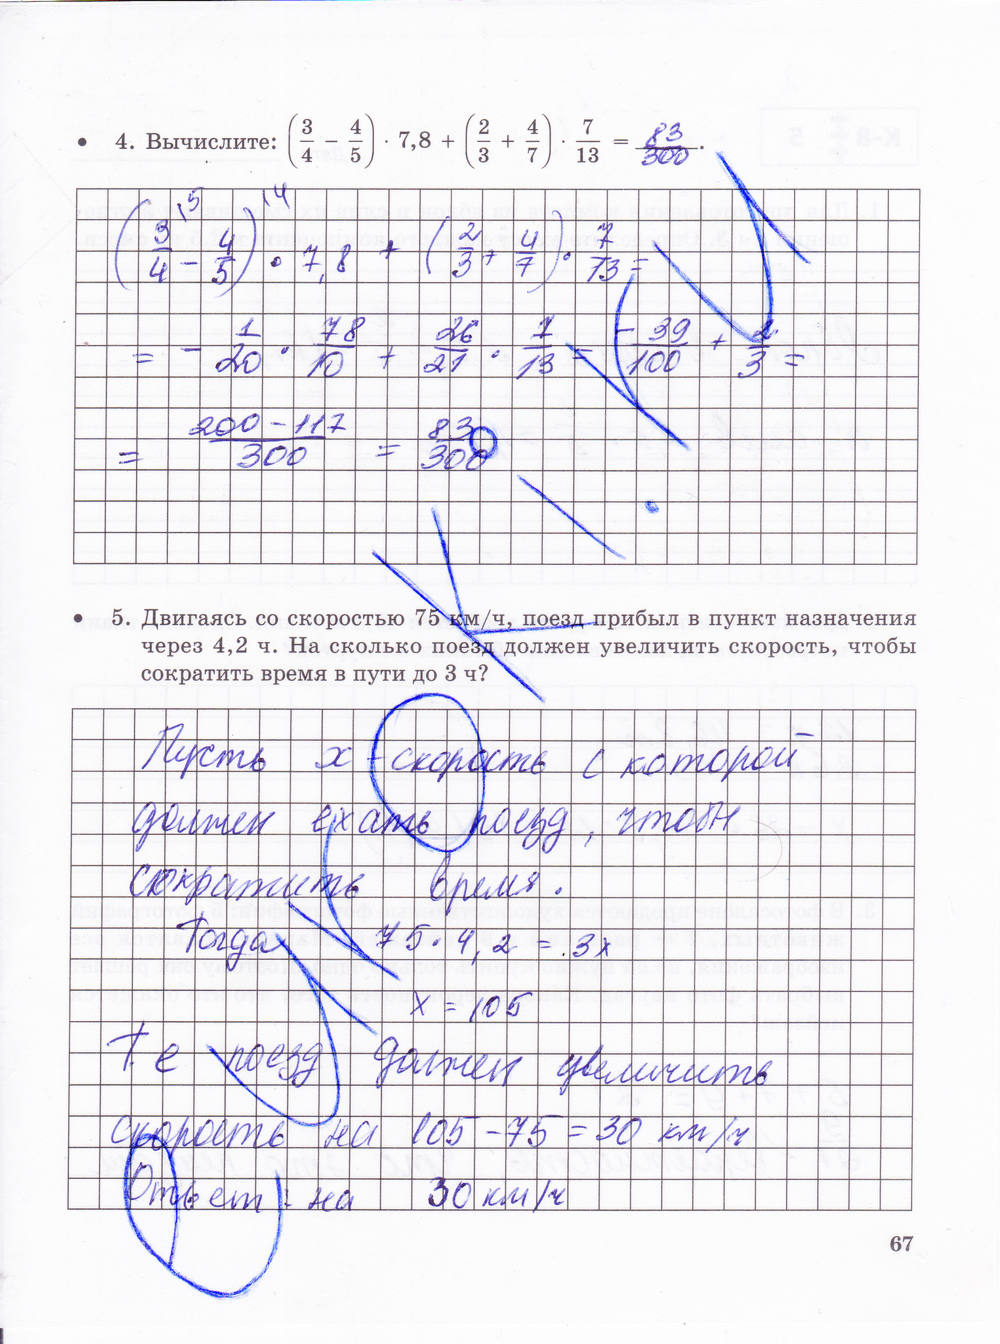 • 4. Вычислите: (3/4 − 4/5) · 7,8 + (2/3 + 4/7) · 7/13 = 83/300.
(3/4 − 4/5) · 7,8 + (2/3 + 4/7) · 7/13 =
= − 1/20 · 78/10 + 26/21 · 7/13 = − 39/100 + 2/3 =
= 200 − 117/300 = 83/300
• 5. Двигаясь со скоростью 75 км/ч, поезд прибыл в пункт назначения
через 4,2 ч. На сколько поезд должен увеличить скорость, чтобы
сократить время в пути до 3 ч?
Пусть x – скорость с которой
должен ехать поезд, чтобы
сократить время.
Тогда 75 · 4,2 = 3x
x = 105
Те поезд должен увеличить
скорость на 105 − 75 = 30 км/ч
Ответ: на 30 км/ч
67